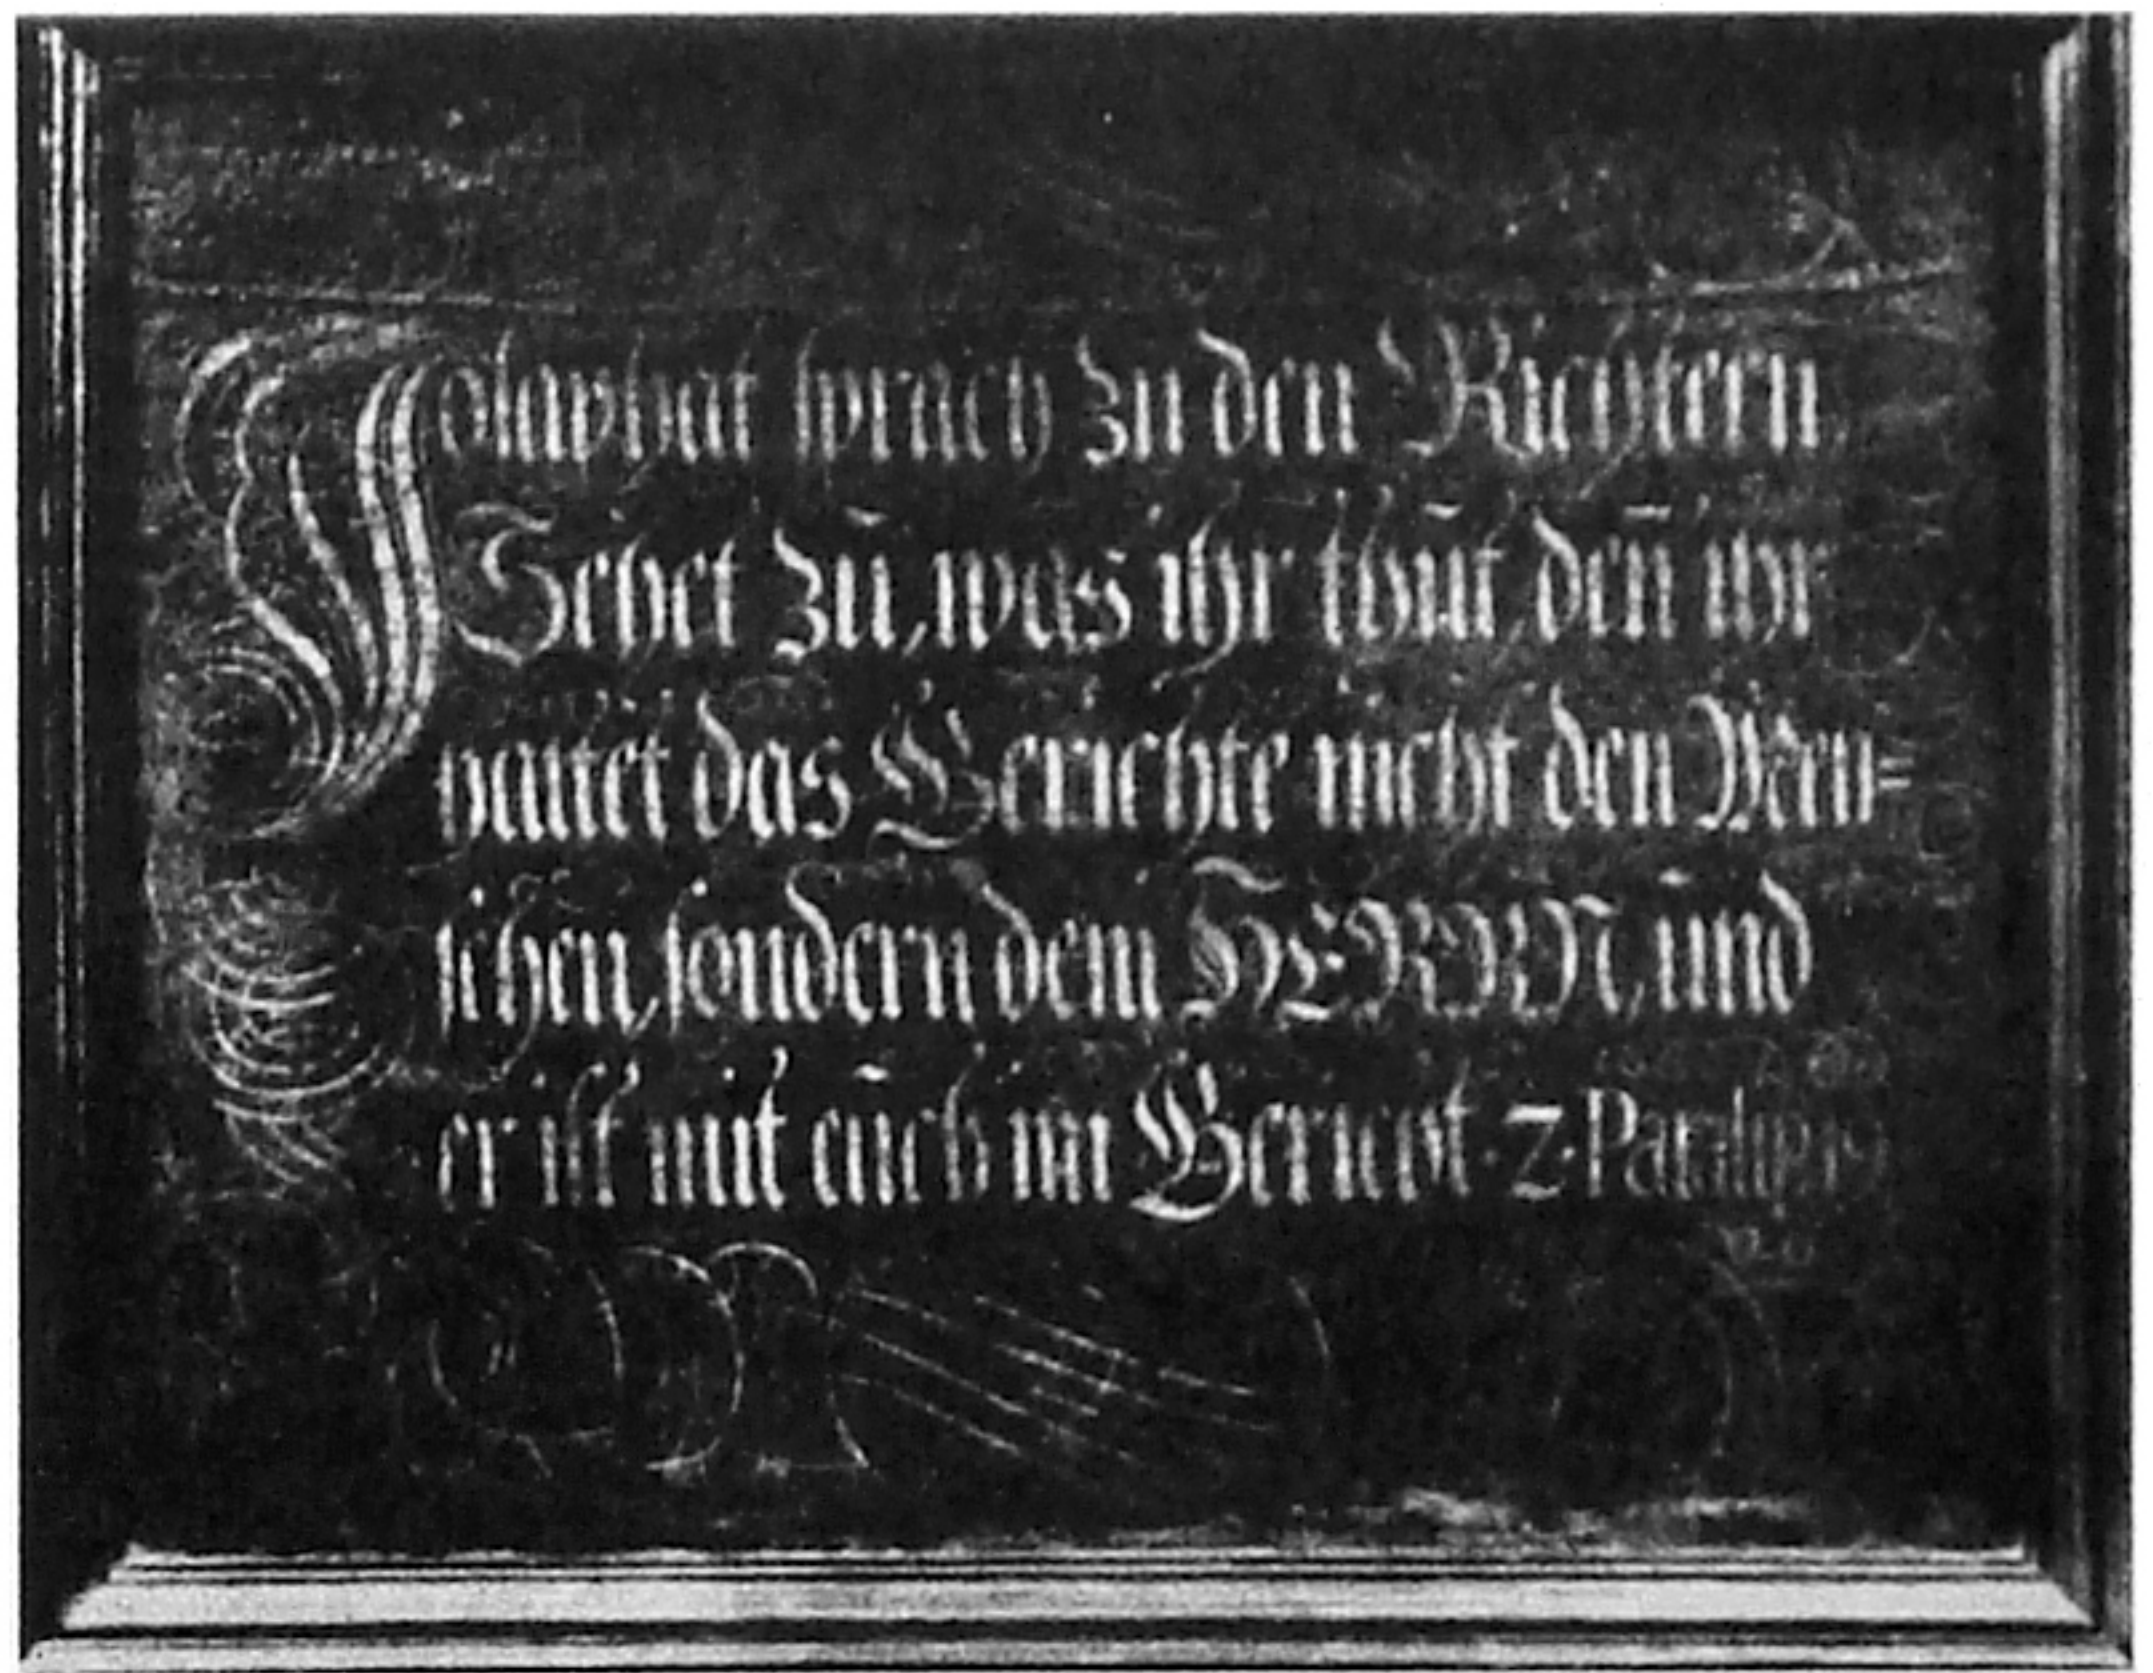 Josaphat sprach zu den Richtern
Sehet zu, was ihr thut, deñ ihr
haltet das Gerichte nicht den Men=
schen, sondern dem HERRN, und
er ist mit euch im Gericht · 2 · Paralip